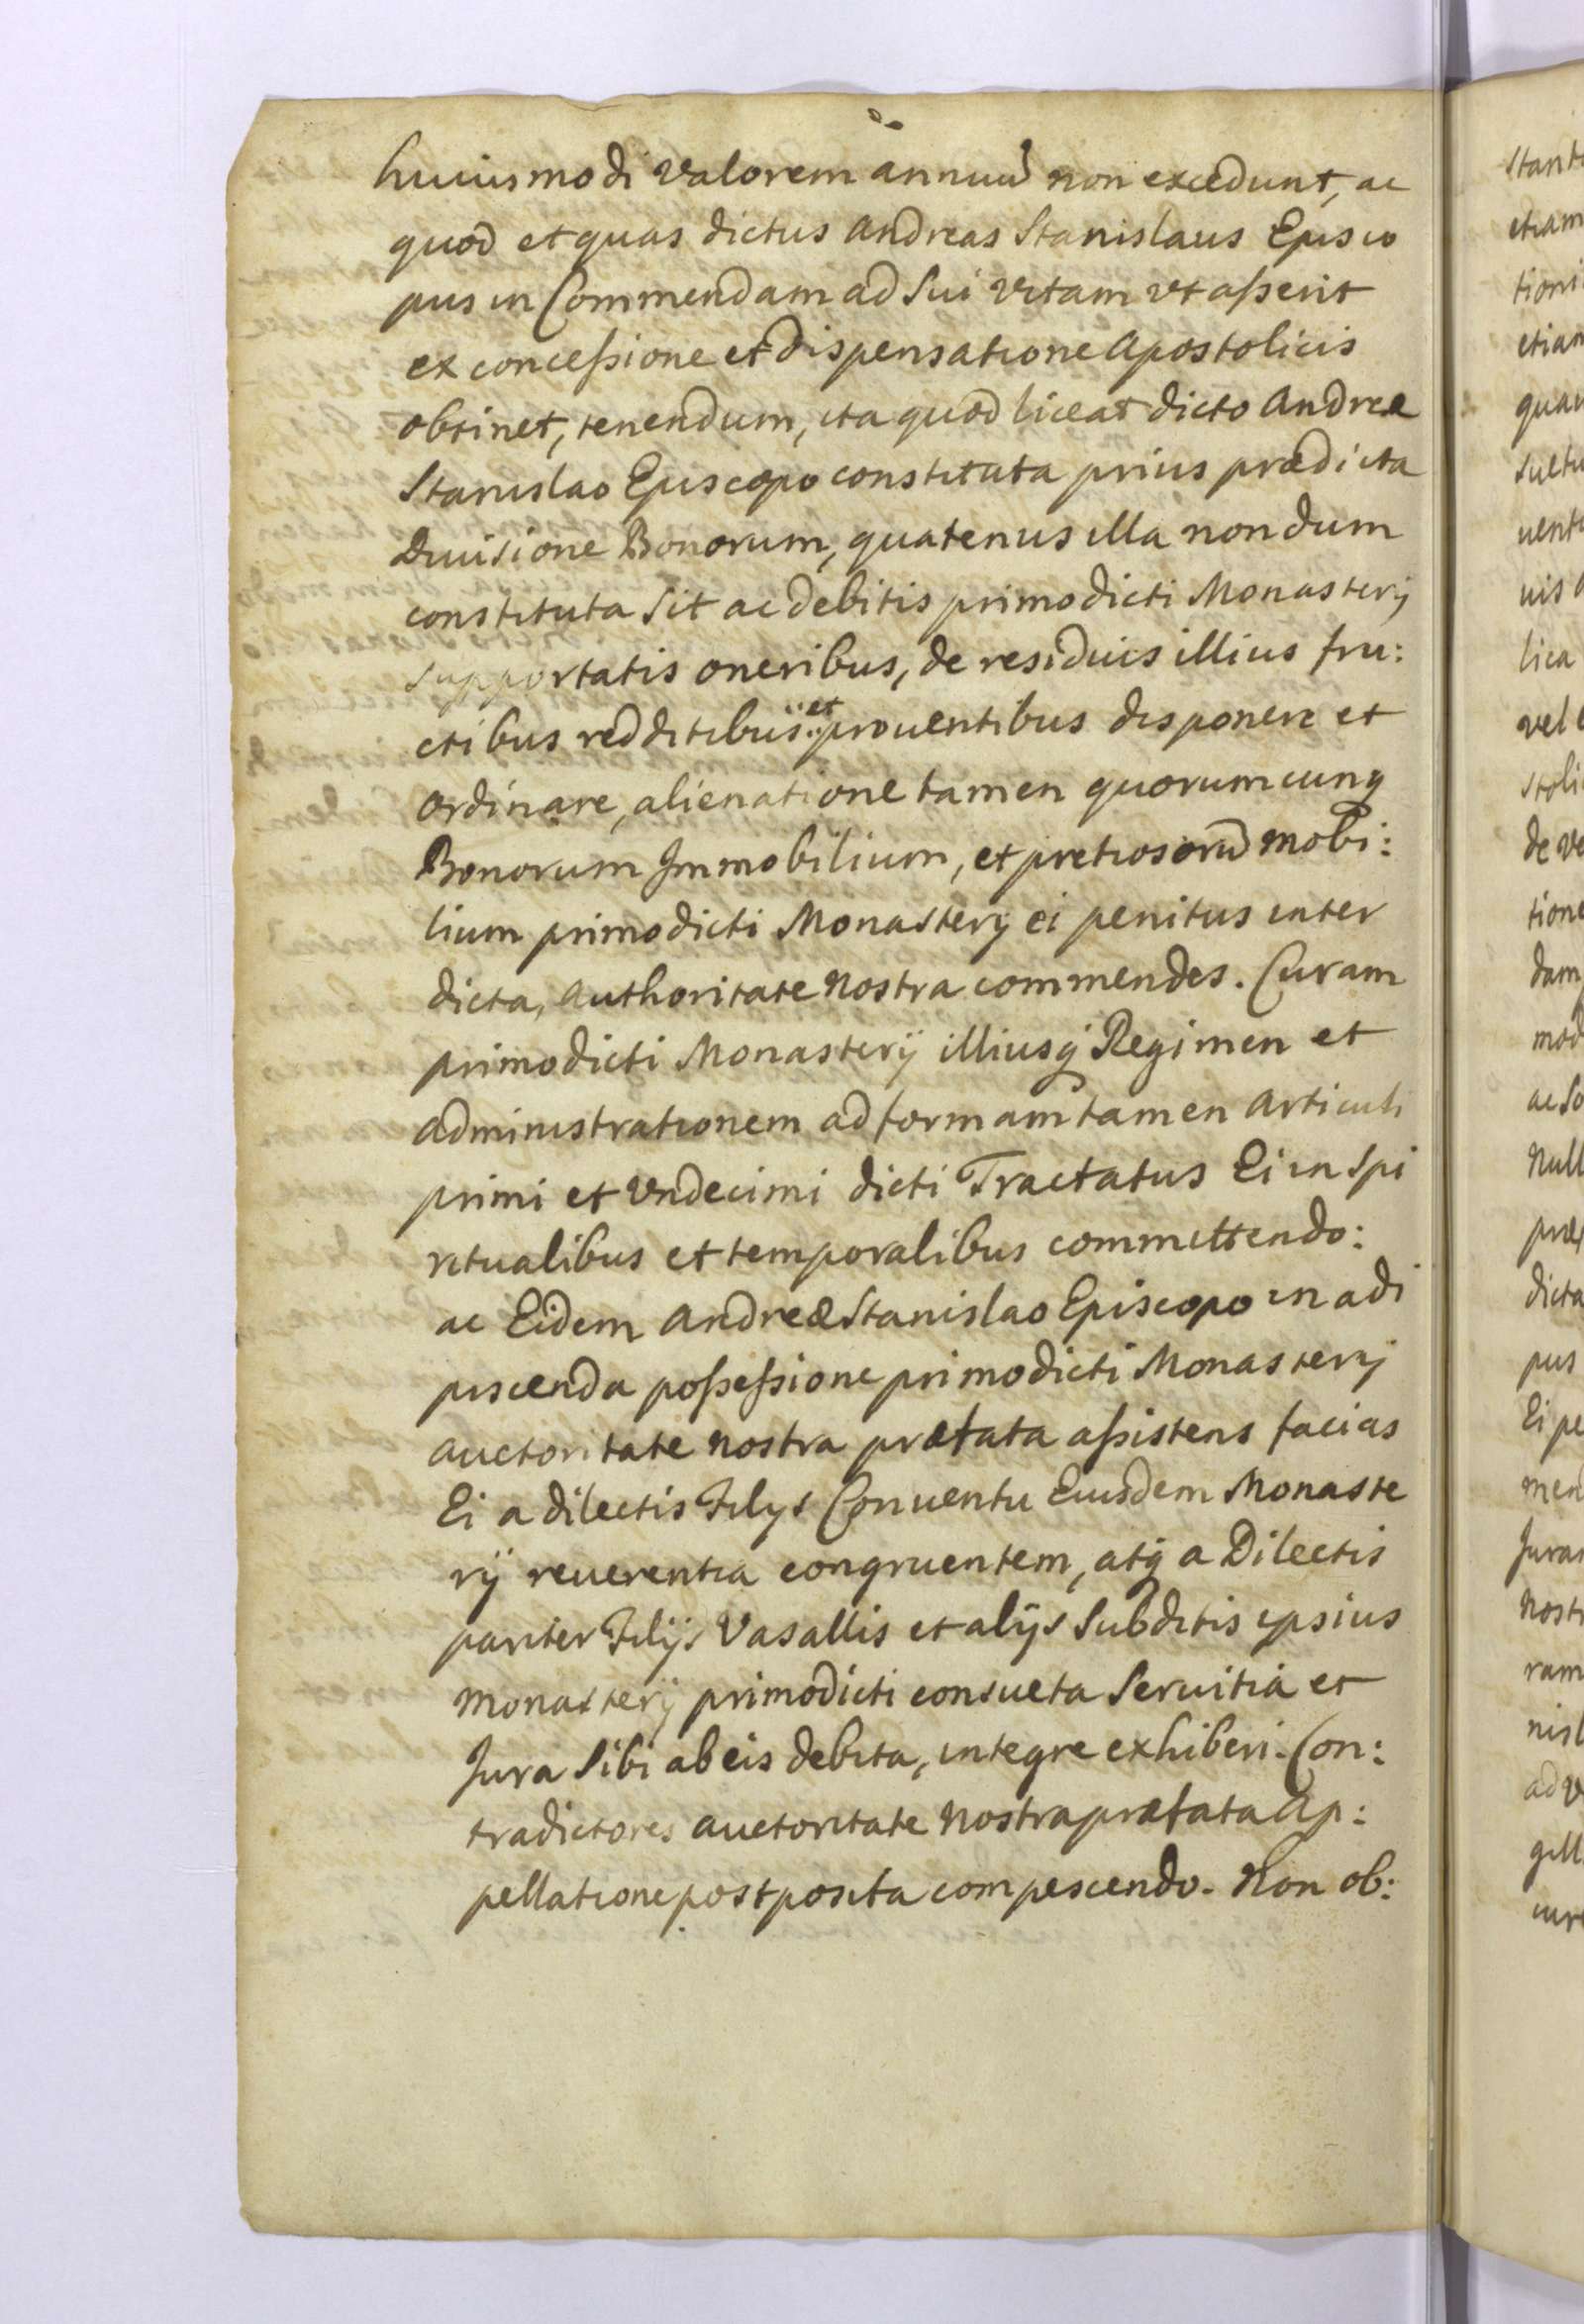 huiusmodi valorem annuū non excedunt, ac
quod et quas dictus Andreas Stanislaus Episco
pus in Commendam ad Sui vitam vt asserit
ex concessione et dispensatione Apostolicis
obtinet, tenendum, ita quod liceat dicto Andreæ
Stanislao Episcopo constituta prius prædicta
Diuisione Bonorum, quatenus illa nondum
constituta Sit ac debitis primodicti Monasterij
supportatis oneribus, de residuis illius fru:
ctibus redditibus et prouentibus disponere et
ordinare, alienatione tamen quorumcunq
Bonorum Immobilium, et pretiosorū mobi:
lium primodicti Monasterij ei penitus inter
dicta, Authoritate Nostra commendes. Curam
primodicti Monasterij illiusq Regimen et
administrationem ad formam tamen Articuli
primi et Vndecimi dicti Tractatus Ei in Spi
ritualibus et temporalibus committendo:
ac Eidem Andreæ Stanislao Episcopo in adi
piscenda possessione primodicti Monasterij
auctoritate nostra præfata assistens facias
Ei a dilectis Filijs Conuentu Eiusdem Monaste
rij reuerentia congruentem, atq a Dilectis
pariter Filijs Vasallis et alijs Subditis ipsius
Monasterij primodicti consueta Seruitia et
Jura Sibi ab eis debita, integre exhiberi. Con:
tradictores auctoritate Nostra præfata Ap:
pellatione postposita compescendo. Non ob: